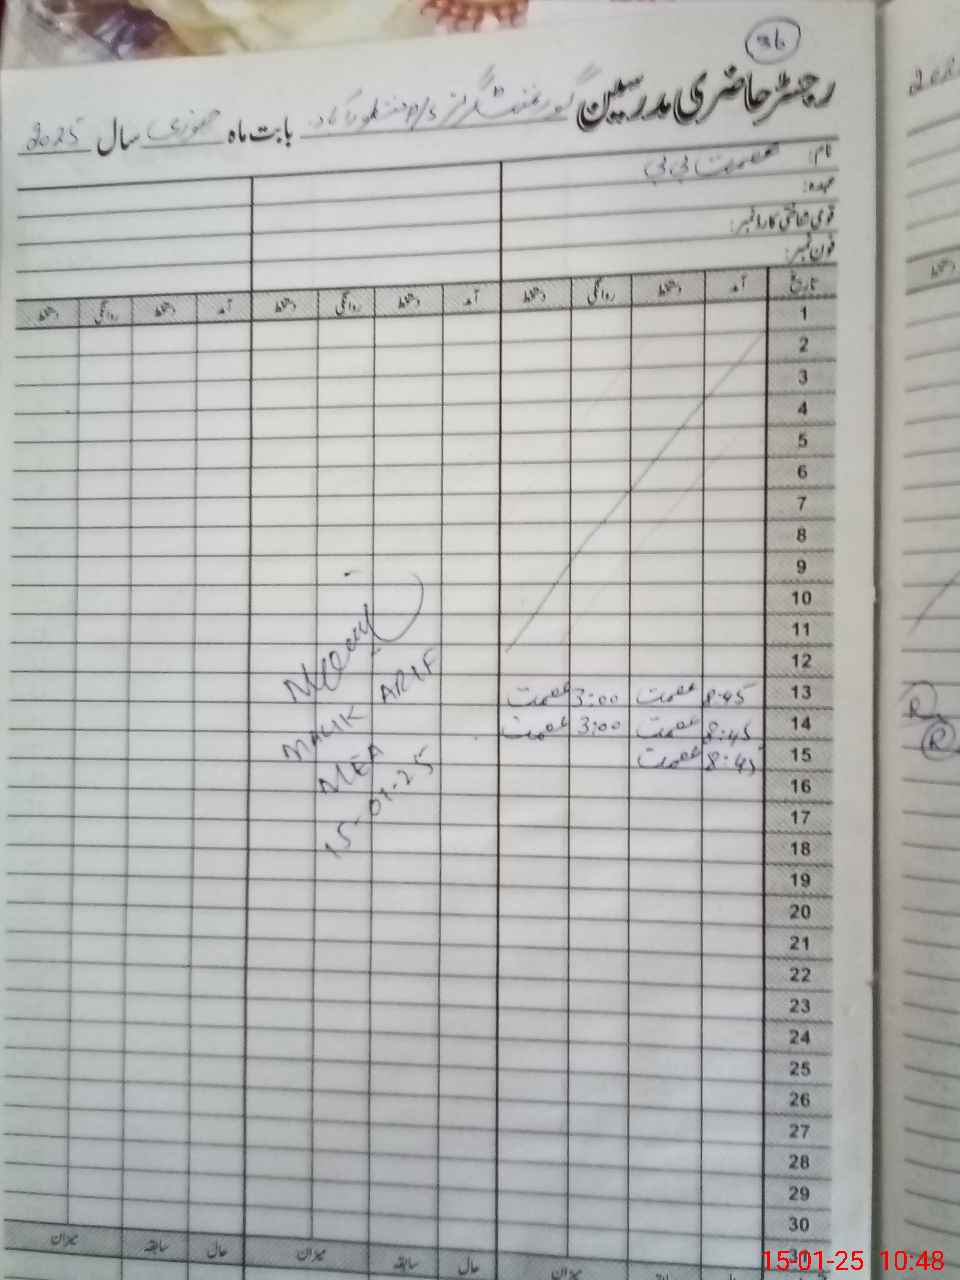 36
رجسٹر حاضری مدرسین گورنمنٹ گرلز p/s بابت ماہ جنوری سال 2025
نام: عصمت بی بی
عہدہ:
قومی شناختی کارڈ نمبر:
فون نمبر:
تاریخ آمد دستخط روانگی دستخط آمد دستخط روانگی دستخط آمد دستخط روانگی دستخط
1
2
3
4
5
6
7
8
9
10
11
12
13 8:45 عصمت 3:00 عصمت
14 8:45 عصمت 3:00 عصمت
15 8:45 عصمت
16
17
18
19
20
21
22
23
24
25
26
27
28
29
30
31
میزان حال سابقہ میزان حال سابقہ میزان
MALIK ARIF
MEA
15-01-25
R
R
15-01-25 10:48